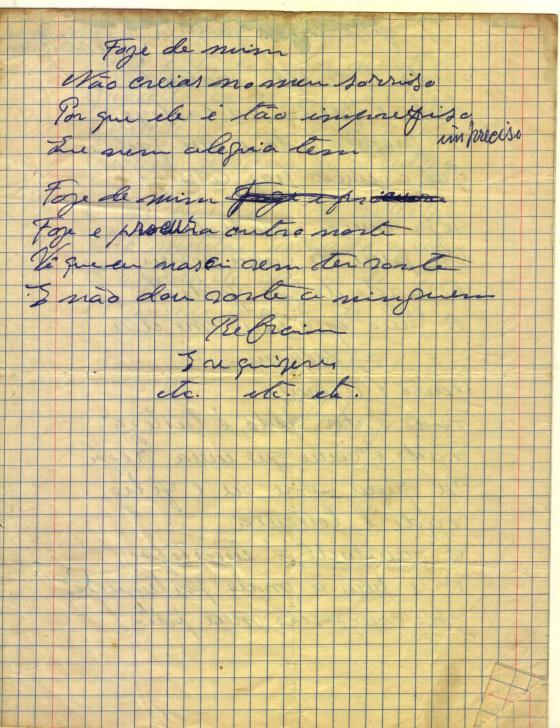 Foge de mim
Não creias no meu sorriso
Por que ele é tão impreciso
impreciso
Que nem alegria tem
Foge de mim Foge e procura
Foge e procura outro norte
Vê que eu nasci sem ter sorte
E não dou sorte a ninguem
Refrain
E se quizeres
etc. etc. etc.